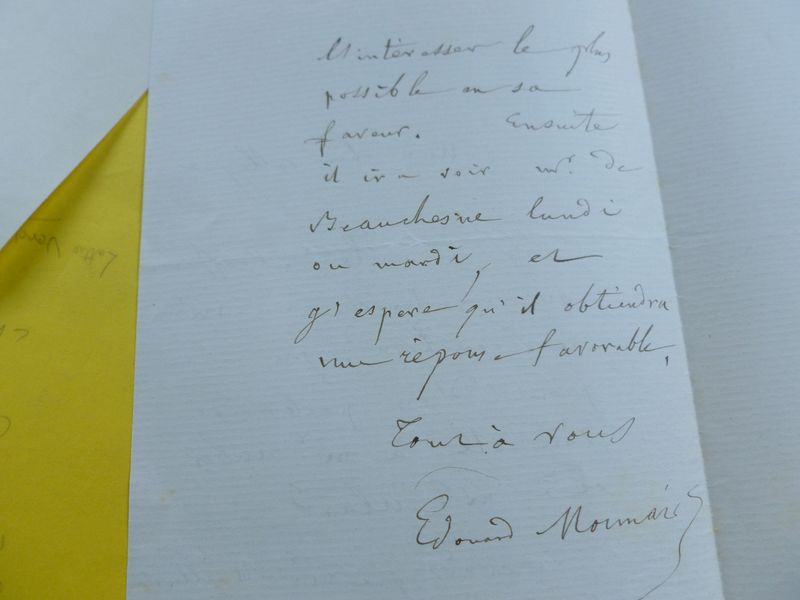 l'intéresser le plus
possible en sa
faveur. Ensuite
il ira voir mr. de
Beauchesne lundi
ou mardi, et
j'espere qu'il obtiendra
une réponse favorable.
Tout à vous
Edouard Monnais